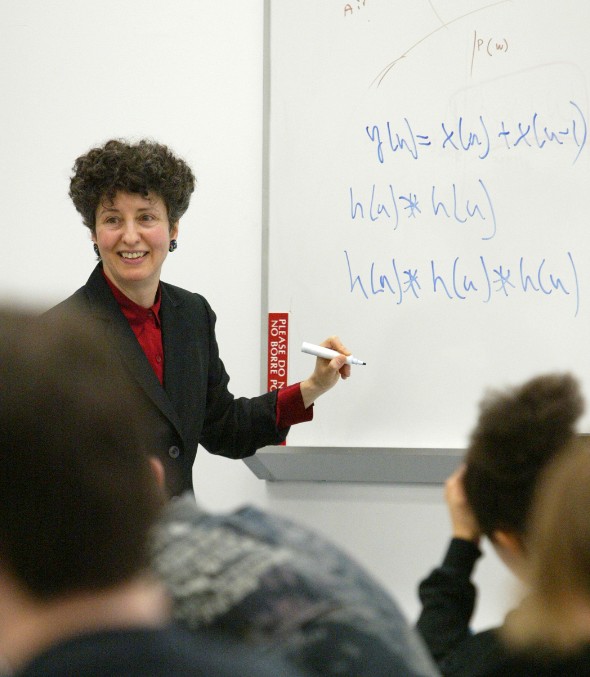 Air
P(w)
y(n) = x(n) + x(n-1)
h(n) * h(n)
h(n) * h(n) * h(n)
PLEASE DO N
NO BORRE PO